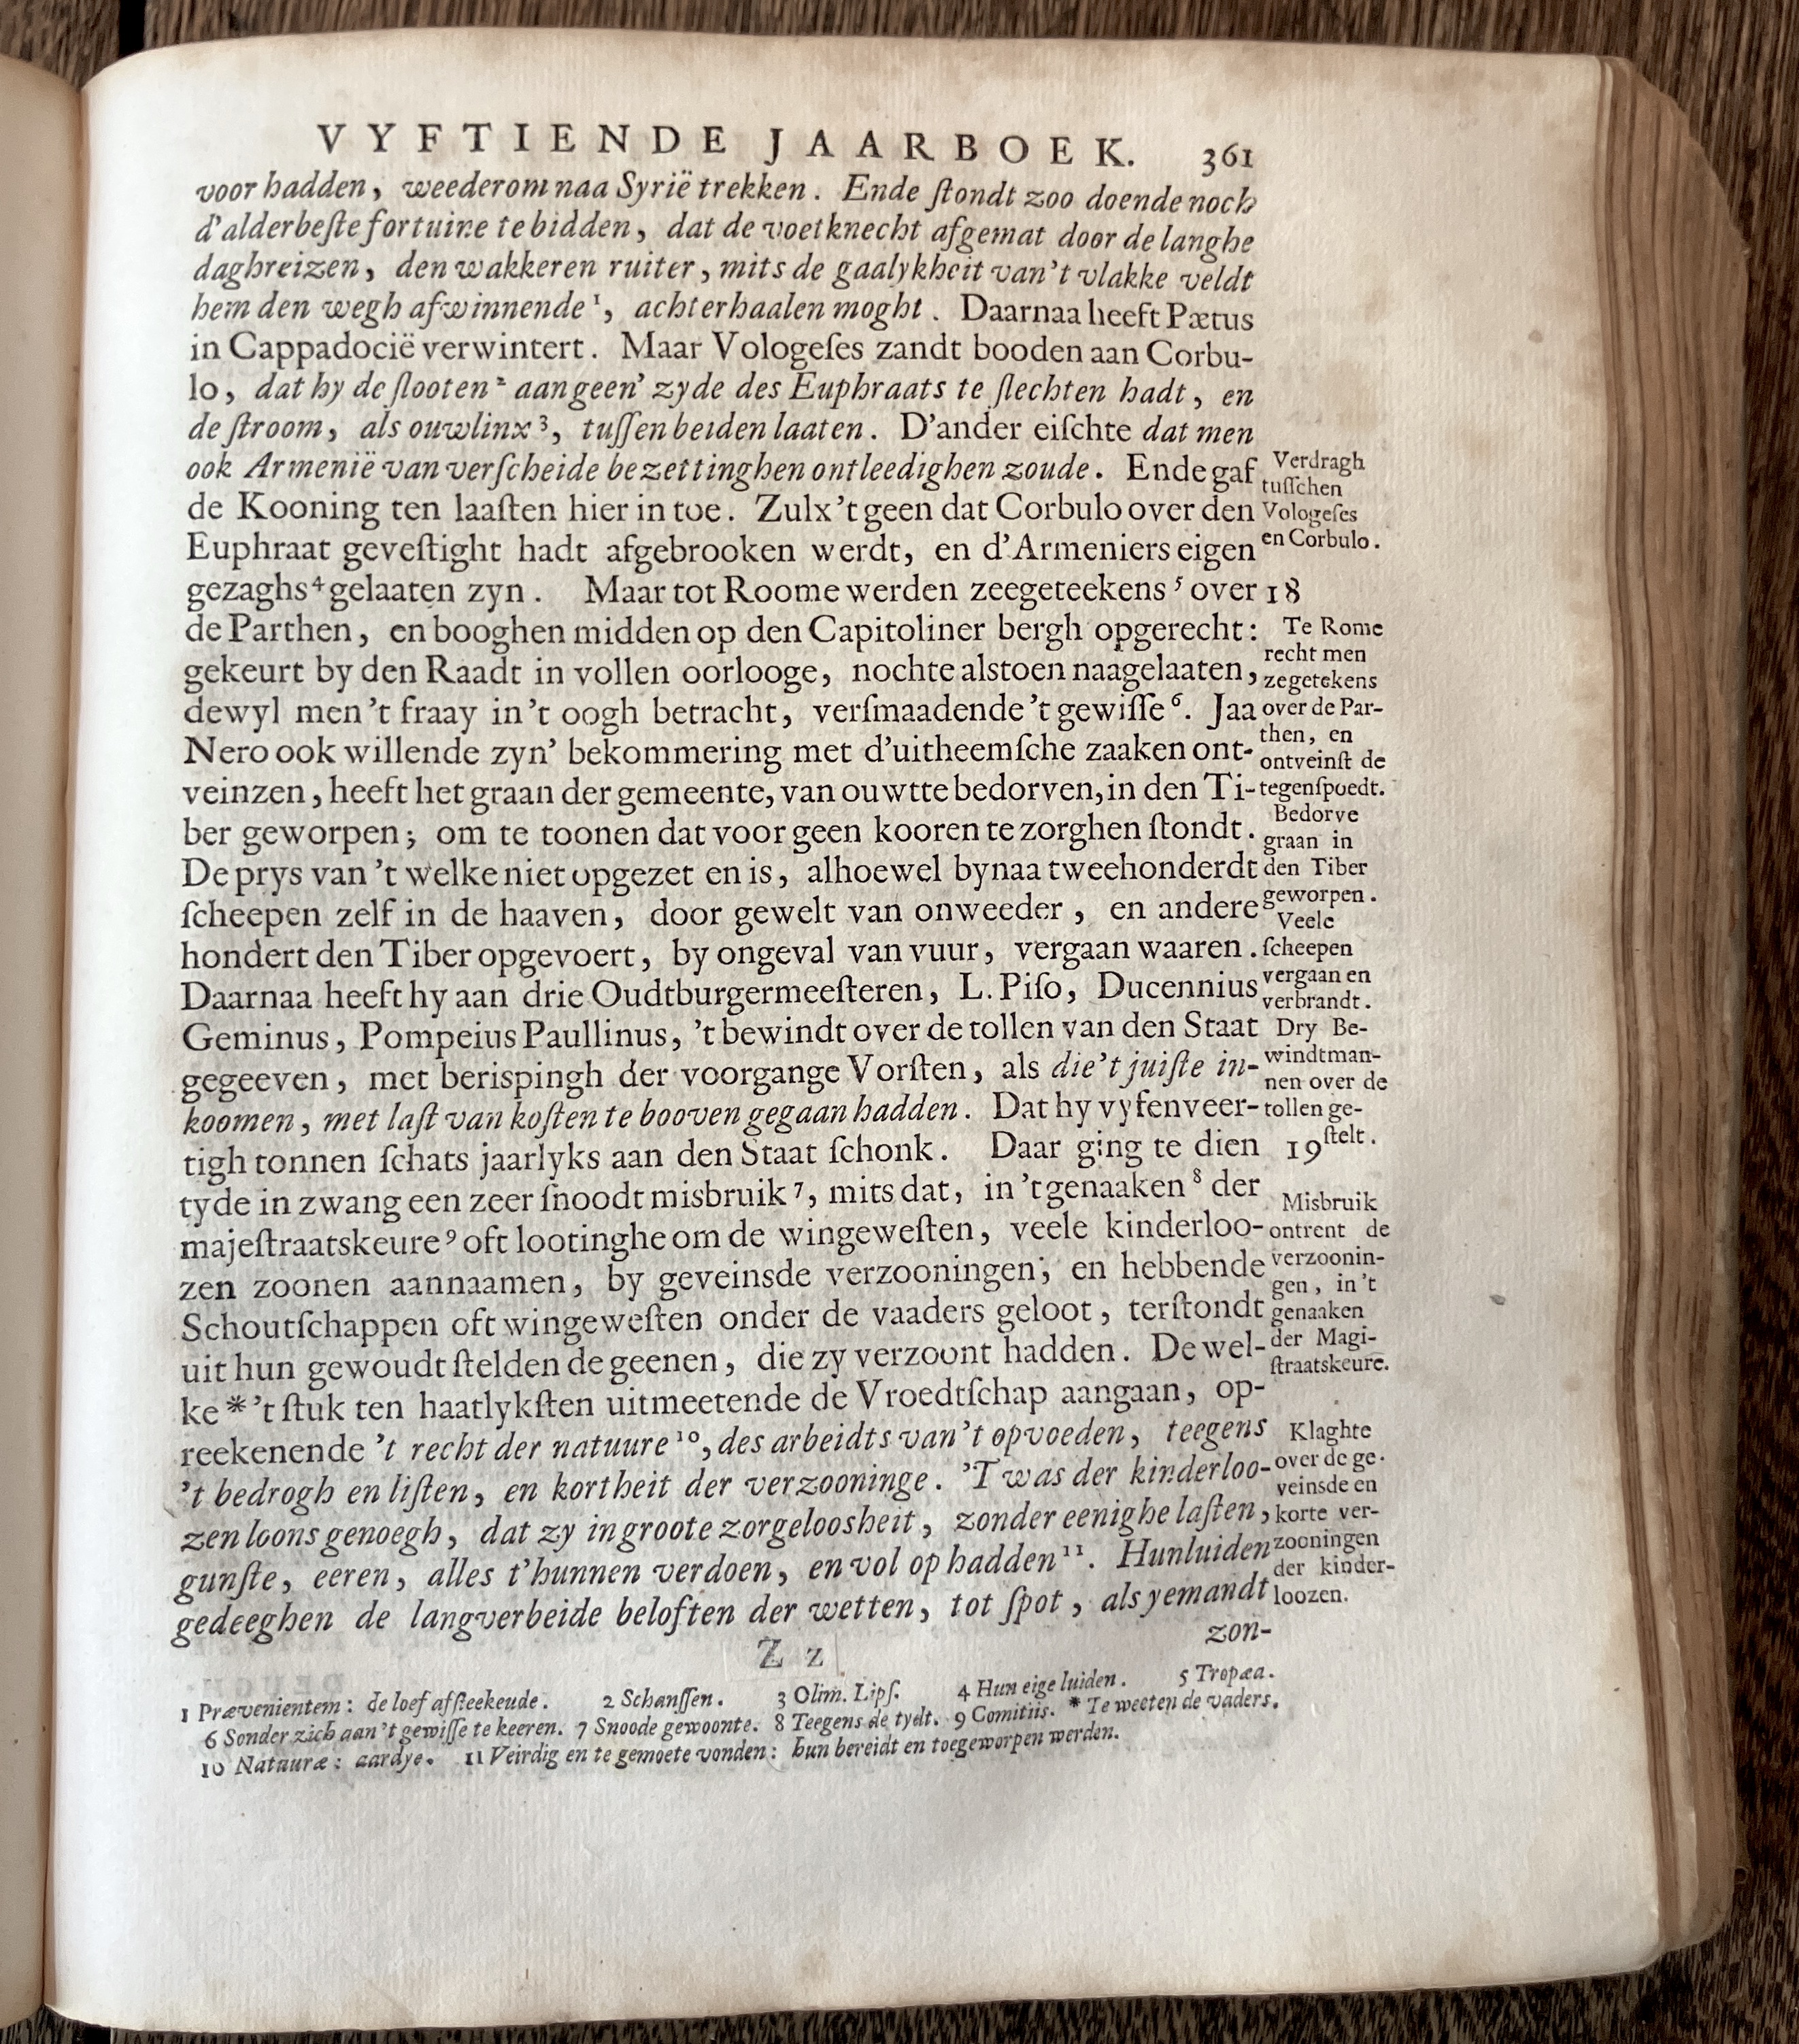 VYFTIENDE JAARBOEK. 361
voor hadden, weederom naa Syrië trekken. Ende ſtondt zoo doende noch
d'alderbeſte fortuine te bidden, dat de voetknecht afgemat door de langhe
daghreizen, den wakkeren ruiter, mits de gaalykheit van't vlakke veldt
hem den wegh afwinnende¹, achterhaalen moght. Daarnaa heeft Pætus
in Cappadocië verwintert. Maar Vologeſes zandt booden aan Corbu-
lo, dat hy de ſlooten² aan geen' zyde des Euphraats te ſlechten hadt, en
de ſtroom, als ouwlinx³, tuſſen beiden laaten. D'ander eiſchte dat men
ook Armenië van verſcheide bezettinghen ontleedighen zoude. Ende gaf
de Kooning ten laaſten hier in toe. Zulx 't geen dat Corbulo over den
Euphraat geveſtight hadt afgebrooken werdt, en d'Armeniers eigen
gezaghs⁴ gelaaten zyn. Maar tot Roome werden zeegeteekens⁵ over
de Parthen, en booghen midden op den Capitoliner bergh opgerecht:
gekeurt by den Raadt in vollen oorlooge, nochte alstoen naagelaaten,
dewyl men 't fraay in 't oogh betracht, verſmaadende 't gewiſſe⁶. Jaa
Nero ook willende zyn' bekommering met d'uitheemſche zaaken ont-
veinzen, heeft het graan der gemeente, van ouwtte bedorven, in den Ti-
ber geworpen; om te toonen dat voor geen kooren te zorghen ſtondt.
De prys van 't welke niet opgezet en is, alhoewel bynaa tweehonderdt
ſcheepen zelf in de haaven, door gewelt van onweeder, en andere
hondert den Tiber opgevoert, by ongeval van vuur, vergaan waaren.
Daarnaa heeft hy aan drie Oudtburgermeeſteren, L. Piſo, Ducennius
Geminus, Pompeius Paullinus, 't bewindt over de tollen van den Staat
gegeeven, met berispingh der voorgange Vorſten, als die 't juiſte in-
koomen, met laſt van koſten te booven gegaan hadden. Dat hy vyfenveer-
tigh tonnen ſchats jaarlyks aan den Staat ſchonk. Daar ging te dien
tyde in zwang een zeer ſnoodt misbruik⁷, mits dat, in 't genaaken⁸ der
majeſtraatskeure⁹ oft lootinghe om de wingeweſten, veele kinderloo-
zen zoonen aannaamen, by geveinsde verzooningen; en hebbende
Schoutſchappen oft wingeweſten onder de vaaders geloot, terſtondt
uit hun gewoudt ſtelden de geenen, die zy verzoont hadden. De wel-
ke * 't ſtuk ten haatlykſten uitmeetende de Vroedtſchap aangaan, op-
reekenende 't recht der natuure¹⁰, des arbeidts van't opvoeden, teegens
't bedrogh en liſten, en kortheit der verzooninge. 'T was der kinderloo-
zen loons genoegh, dat zy in groote zorgeloosheit, zonder eenighe laſten,
gunſte, eeren, alles t'hunnen verdoen, en vol op hadden¹¹. Hunluiden
gedeeghen de langverbeide beloften der wetten, tot ſpot, als yemandt
zon-
Z z
Verdragh
tuſſchen
Vologeſes
en Corbulo.
18
Te Rome
recht men
zegetekens
over de Par-
then, en
ontveinſt de
tegenſpoedt.
Bedorve
graan in
den Tiber
geworpen.
Veele
ſcheepen
vergaan en
verbrandt.
Dry Be-
windtman-
nen over de
tollen ge-
ſtelt.
19
Misbruik
ontrent de
verzoonin-
gen, in 't
genaaken
der Magi-
ſtraatskeure.
Klaghte
over de ge-
veinsde en
korte ver-
zooningen
der kinder-
loozen.
1 Prævenientem: de loef afſteekende. 2 Schanſſen. 3 Olim. Lipſ. 4 Hun eige luiden. 5 Tropæa.
6 Sonder zich aan't gewiſſe te keeren. 7 Snoode gewoonte. 8 Teegens de tydt. 9 Comitiis. * Te weeten de vaders.
10 Natuuræ: aardye. 11 Veirdig en te gemoete vonden: hun bereidt en toegeworpen werden.